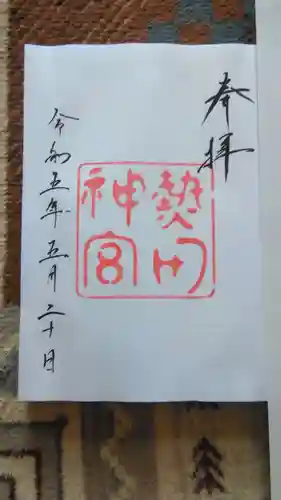 奉拝
熱田
神宮
令和五年五月二十日